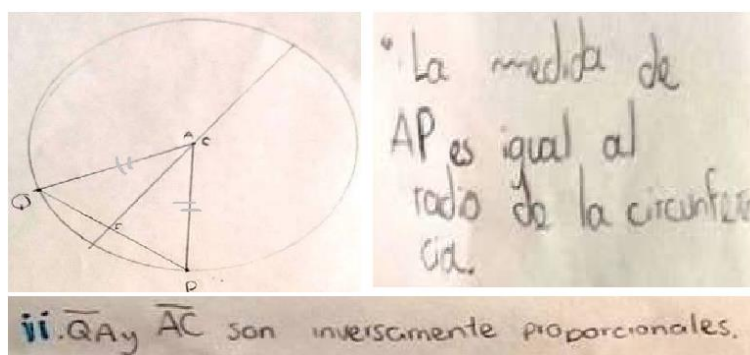 A
C
Q
P
• La medida de
AP es igual al
radio de la circunferen
cia.
ii. QA y AC son inversamente proporcionales.